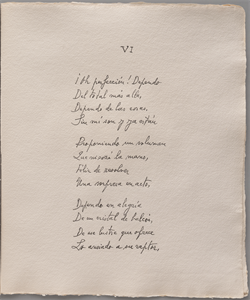 VI
¡Oh perfección! Dependo
Del total más allá,
Dependo de las cosas.
Sin mí son y ya están
Proponiendo un volumen
Que ni soñó la mano,
Feliz de resolver
Una sorpresa en acto.
Dependo en alegría
De un cristal de balcón,
De ese lustre que ofrece
Lo ansiado a su raptor,